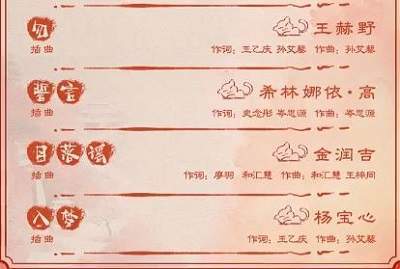 幻
王赫野
插曲
作词：王乙庆 孙艾藜 作曲：孙艾藜
誓言
希林娜依·高
插曲
作词：史念彤 岑思源 作曲：岑思源
日落浔
金润吉
插曲
作词：廖羽 和汇慧 作曲：和汇慧 王梓同
入梦
杨宝心
插曲
作词：王乙庆 作曲：孙艾藜